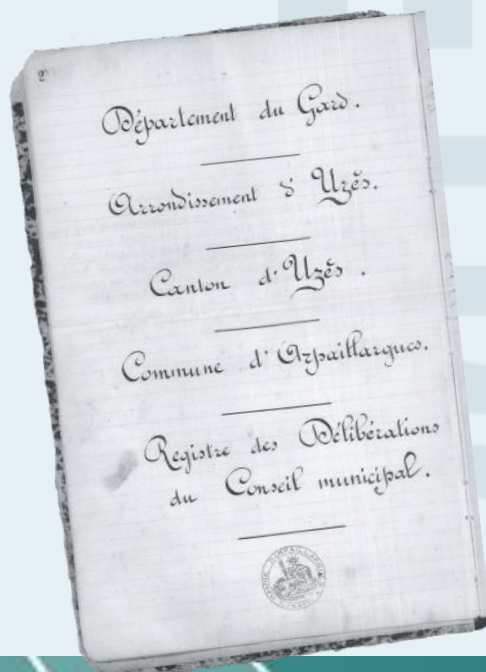 2
Département du Gard.
Arrondissement d'Uzès.
Canton d'Uzès.
Commune d'Arpaillargues.
Registre des Délibérations
du Conseil municipal.